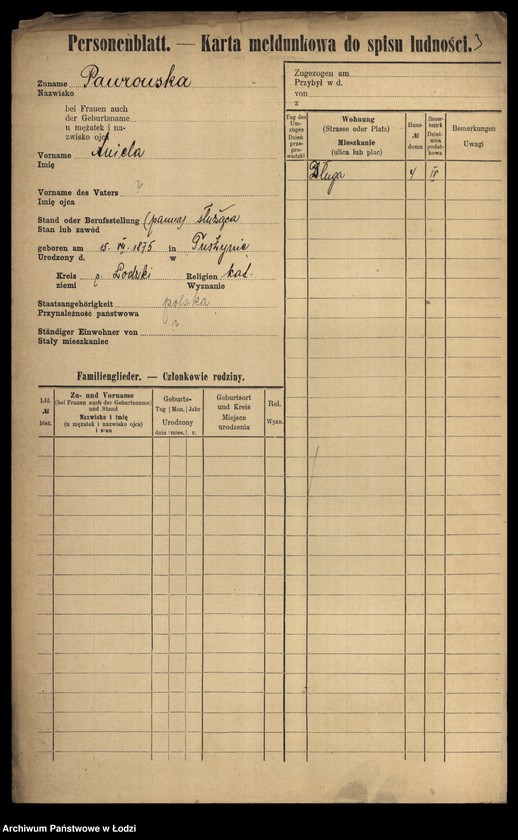 Personenblatt. — Karta meldunkowa do spisu ludności. 3
Zuname Pawrowska
Nazwisko
bei Frauen auch
der Geburtsname
u mężatek i na-
zwisko ojca
Vorname Aniela
Imię
Vorname des Vaters ?
Imię ojca
Stand oder Berufsstellung (panna) służąca
Stan lub zawód
geboren am 15. VII. 1875 in Tuszynie
Urodzony d. w
Kreis p. Lodzki Religion kat.
ziemi Wyznanie
Staatsangehörigkeit polska
Przynależność państwowa
Ständiger Einwohner von ?
Stały mieszkaniec
Zugezogen am
Przybył w d.
von
z
Tag des Um-zuges Dzień prze-prowadzki
Wohnung
(Strasse oder Platz)
Mieszkanie
(ulica lub plac)
Haus-
№
domu
Steuer-bezirk Dzielnica podatkowa
Bemerkungen
Uwagi
Długa 4 IV
Familienglieder. — Członkowie rodziny.
Lfd.
№
bież.
Zu- und Vorname
(bei Frauen auch der Geburtsname)
und Stand
Nazwisko i imię
(u mężatek i nazwisko ojca)
i stan
Geburts-
Tag Mon. Jahr
Urodzony
dnia mies. r.
Geburtsort
und Kreis
Miejsce
urodzenia
Rel.
Wyzn.
Archiwum Państwowe w Łodzi